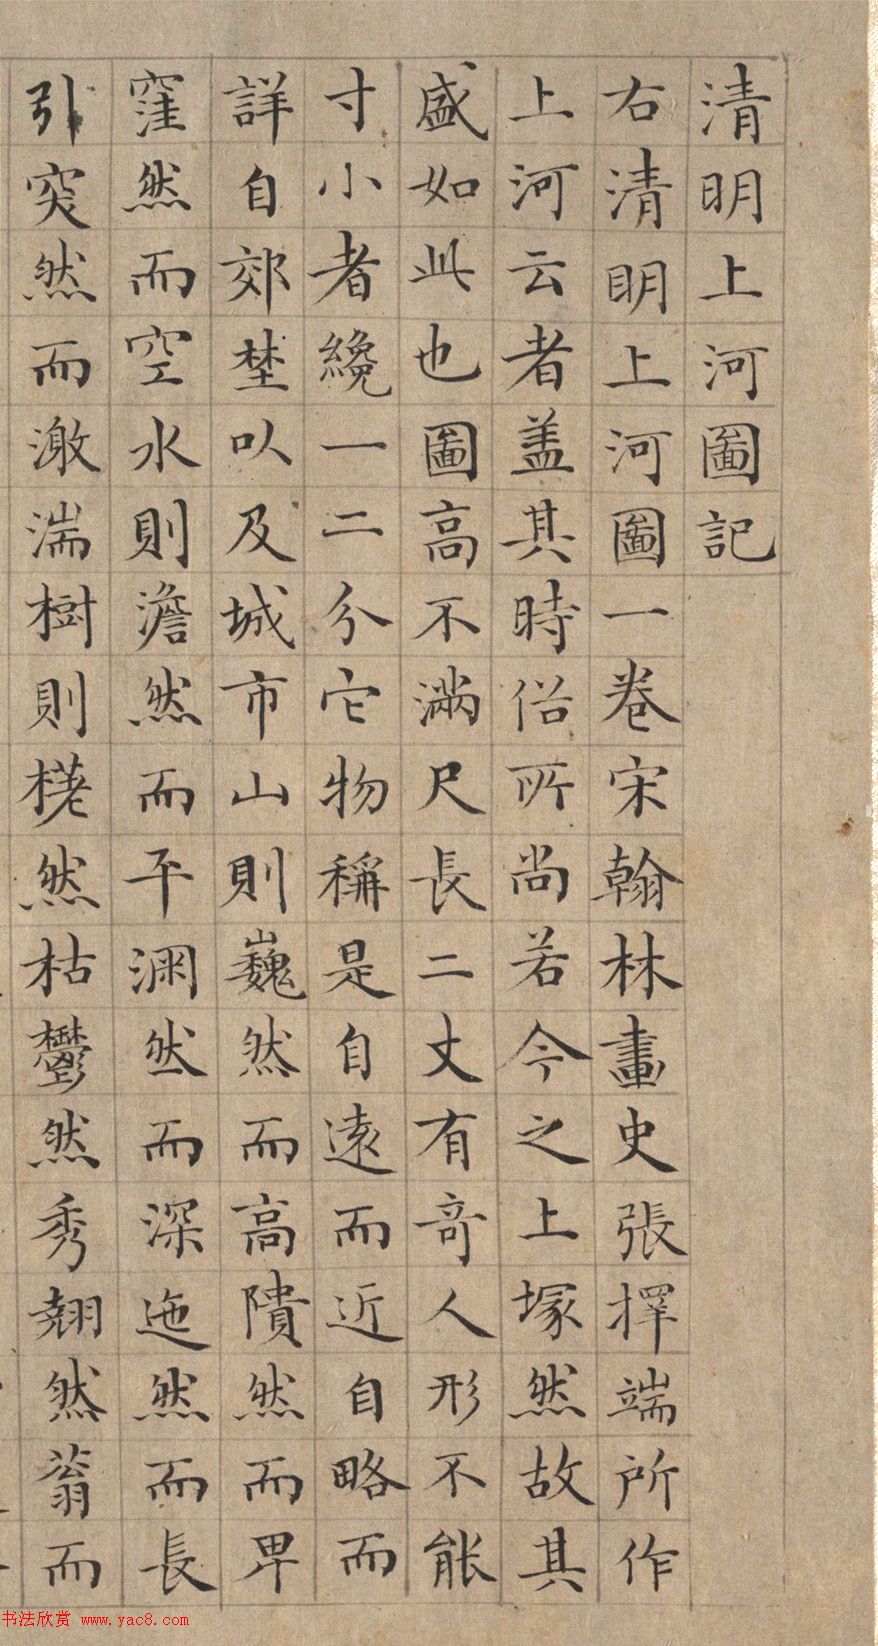 清明上河圖記
右清明上河圖一卷宋翰林畫史張擇端所作
上河云者盖其時俗所尚若今之上塚然故其
盛如此也圖高不滿尺長二丈有奇人形不能
寸小者纔一二分它物稱是自遠而近自略而
詳自郊埜以及城市山則巍然而高隤然而卑
窪然而空水則澹然而平淵然而深迤然而長
引突然而激湍樹則槎然枯鬱然秀翹然蓊而
书法欣赏 www.yac8.com